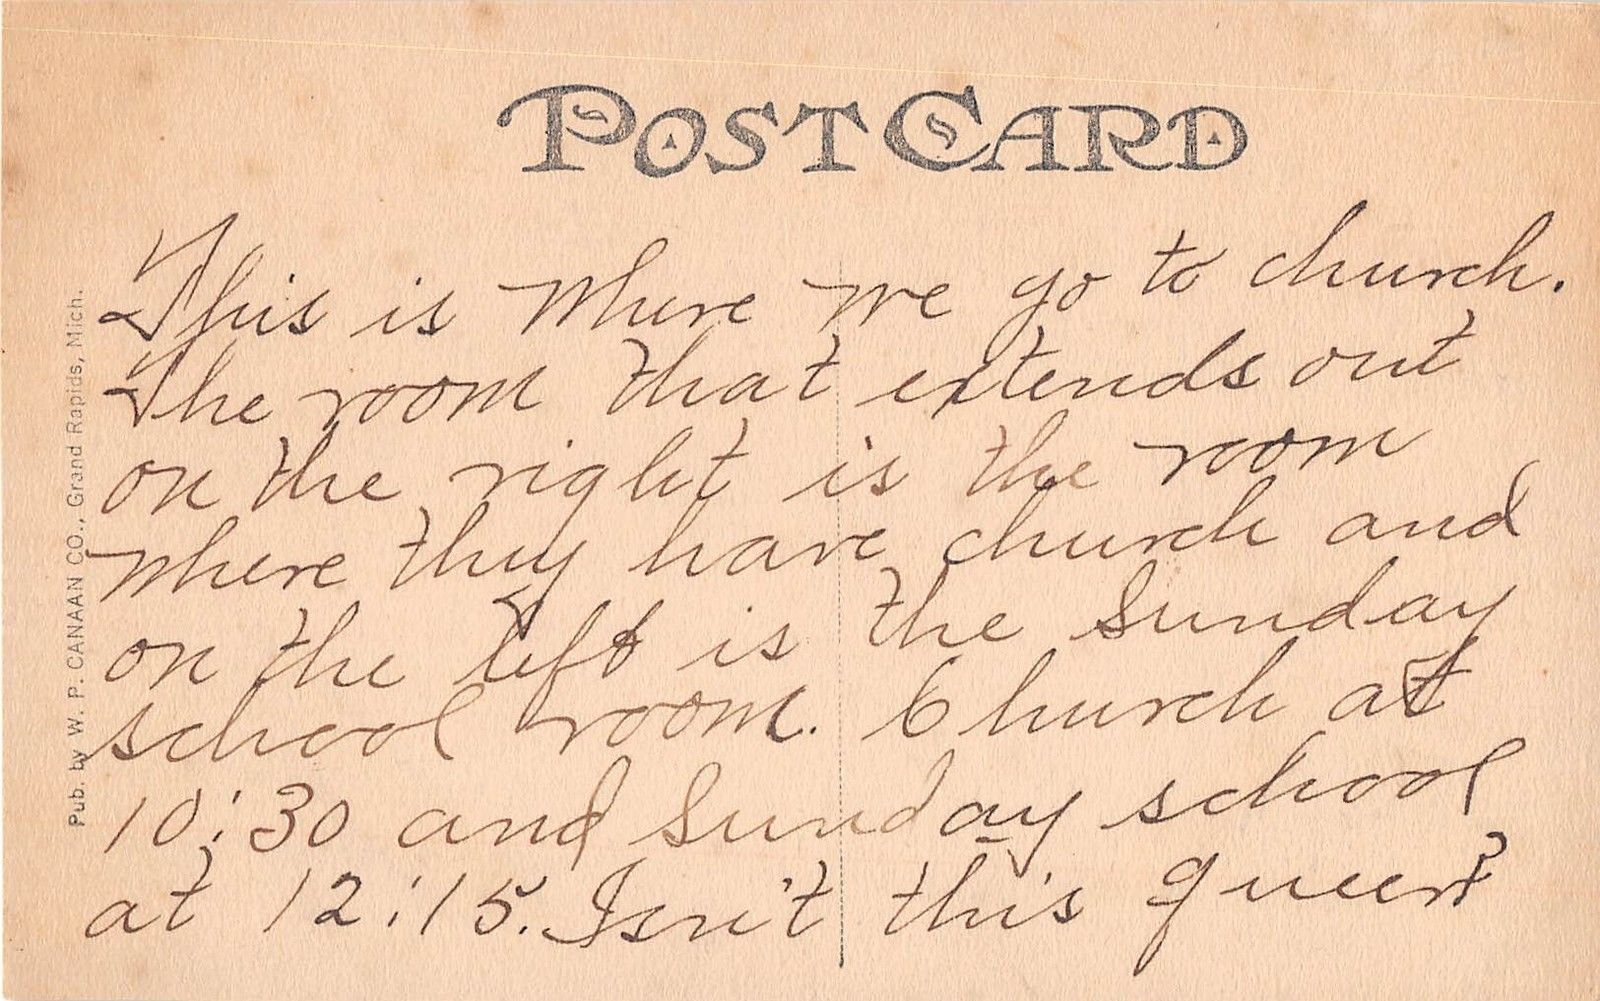 POST CARD
This is where we go to church.
The room that extends out
on the right is the room
where they have church and
on the left is the Sunday
school room. Church at
10:30 and Sunday school
at 12:15. Isn't this queer?
Pub. by W. P. CANAAN CO., Grand Rapids, Mich.